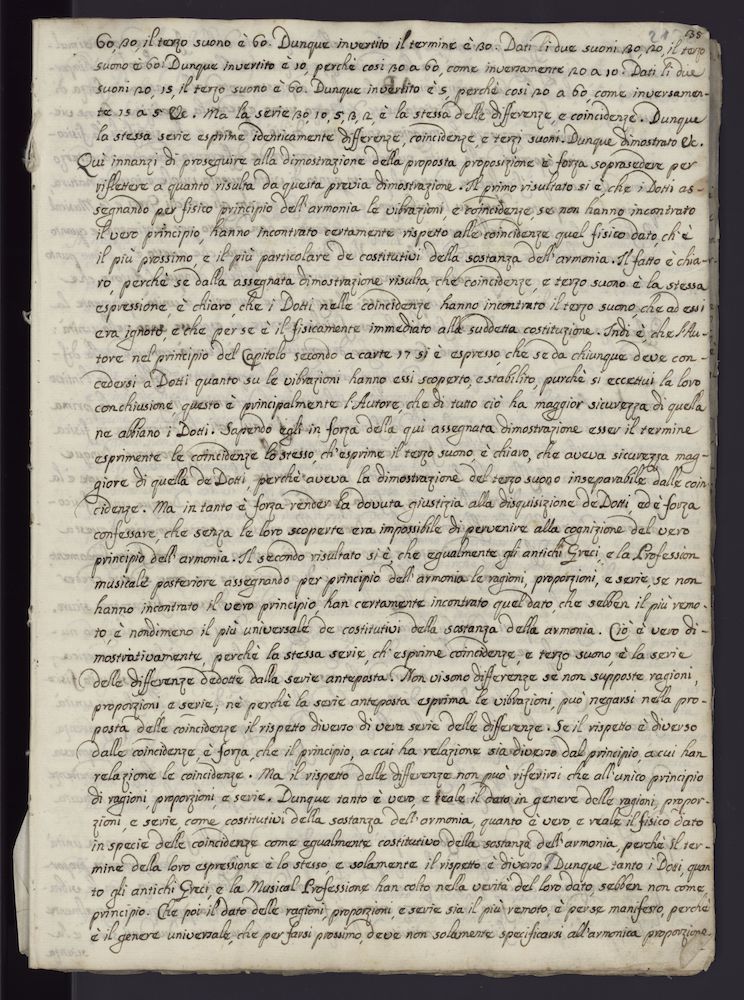 21 38
60, 30, il terzo suono è 60. Dunque invertito il termine è 30. Dati li due suoni 30, 20, il terzo
suono è 60. Dunque invertito è 10, perchè così 30 a 60, come inversamente 20 a 10. Dati li due
suoni 20, 15, il terzo suono è 60. Dunque invertito è 5, perchè così 20 a 60 come inversamen-
te 15 a 5 &c. Ma la serie 30, 10, 5, 3, 2, è la stessa delle differenze, e coincidenze. Dunque
la stessa serie esprime identicamente differenze, coincidenze, e terzi suoni. Dunque dimostrato &c.
Quì innanzi di proseguire alla dimostrazione della proposta proposizione è forza soprasedere per
riflettere a quanto risulta da questa previa dimostrazione. Il primo risultato si è, che i Dotti as-
segnando per fisico principio dell'armonia le vibrazioni, e coincidenze, se non hanno incontrato
il vero principio, hanno incontrato certamente rispetto alle coincidenze quel fisico dato, ch'è
il più prossimo, e il più particolare de costitutivi della sostanza dell'armonia. Il fatto è chia-
ro, perchè se dalla assegnata dimostrazione risulta che coincidenze, e terzo suono è la stessa
espressione, è chiaro, che i Dotti nelle coincidenze hanno incontrato il terzo suono, che ad essi
era ignoto, e che per se è il fisicamente immediato alla suddetta costituzione. Indi è che l'Au-
tore nel principio del Capitolo secondo a carte 17 si è espresso, che se da chiunque deve con-
cedersi a Dotti quanto su le vibrazioni hanno essi scoperto, e stabilito, purchè si eccettui la loro
conchiusione, questo è principalmente l'Autore, che di tutto ciò ha maggior sicurezza di quella
ne abbiano i Dotti. Sapendo egli in forza della quì assegnata dimostrazione esser il termine
esprimente le coincidenze lo stesso, ch'esprime il terzo suono, è chiaro, che aveva sicurezza mag-
giore di quella de Dotti, perchè aveva la dimostrazione del terzo suono inseparabile dalle coin
cidenze. Ma in tanto è forza render la dovuta giustizia alla disquisizione de Dotti, ed è forza
confessare, che senza le loro scoperte era impossibile di pervenire alla cognizione del vero
principio dell'armonia. Il secondo risultato si è, che egualmente gli antichi Greci, e la Profession
musicale posteriore assegnando per principio dell'armonia le ragioni, proporzioni, e serie, se non
hanno incontrato il vero principio han certamente incontrato quel dato, che sebben il più remo-
to, è nondimeno il più universale de costitutivi della sostanza della armonia. Ciò è vero di-
mostrativamente, perchè la stessa serie, ch'esprime coincidenze, e terzo suono, è la serie
delle differenze dedotte dalla serie anteposta. Non vi sono differenze se non supposte ragioni,
proporzioni e serie, nè perchè la serie anteposta esprima le vibrazioni, può negarsi nella pro-
posta delle coincidenze il rispetto diverso di vera serie delle differenze. Se il rispetto è diverso
dalle coincidenze è forza, che il principio, a cui ha relazione sia diverso dal principio, a cui han
relazione le coincidenze. Ma il rispetto delle differenze non può riferirsi che all'unico principio
di ragioni, proporzioni e serie. Dunque tanto è vero, e reale il dato in genere delle ragioni, propor-
zioni, e serie come costitutivi della sostanza dell'armonia, quanto è vero e reale il fisico dato
in specie delle coincidenze come egualmente costitutivo della sostanza dell'armonia, perchè il ter-
mine della loro espressione è lo stesso, e solamente il rispetto è diverso. Dunque tanto i Dotti, quan
to gli antichi Greci, e la Musical Professione han colto nella verità del loro dato, sebben non come
principio. Che poi il dato delle ragioni, proporzioni, e serie sia il più remoto, è per se manifesto, perchè
è il genere universale, che per farsi prossimo, deve non solamente specificarsi all'armonica proporzione